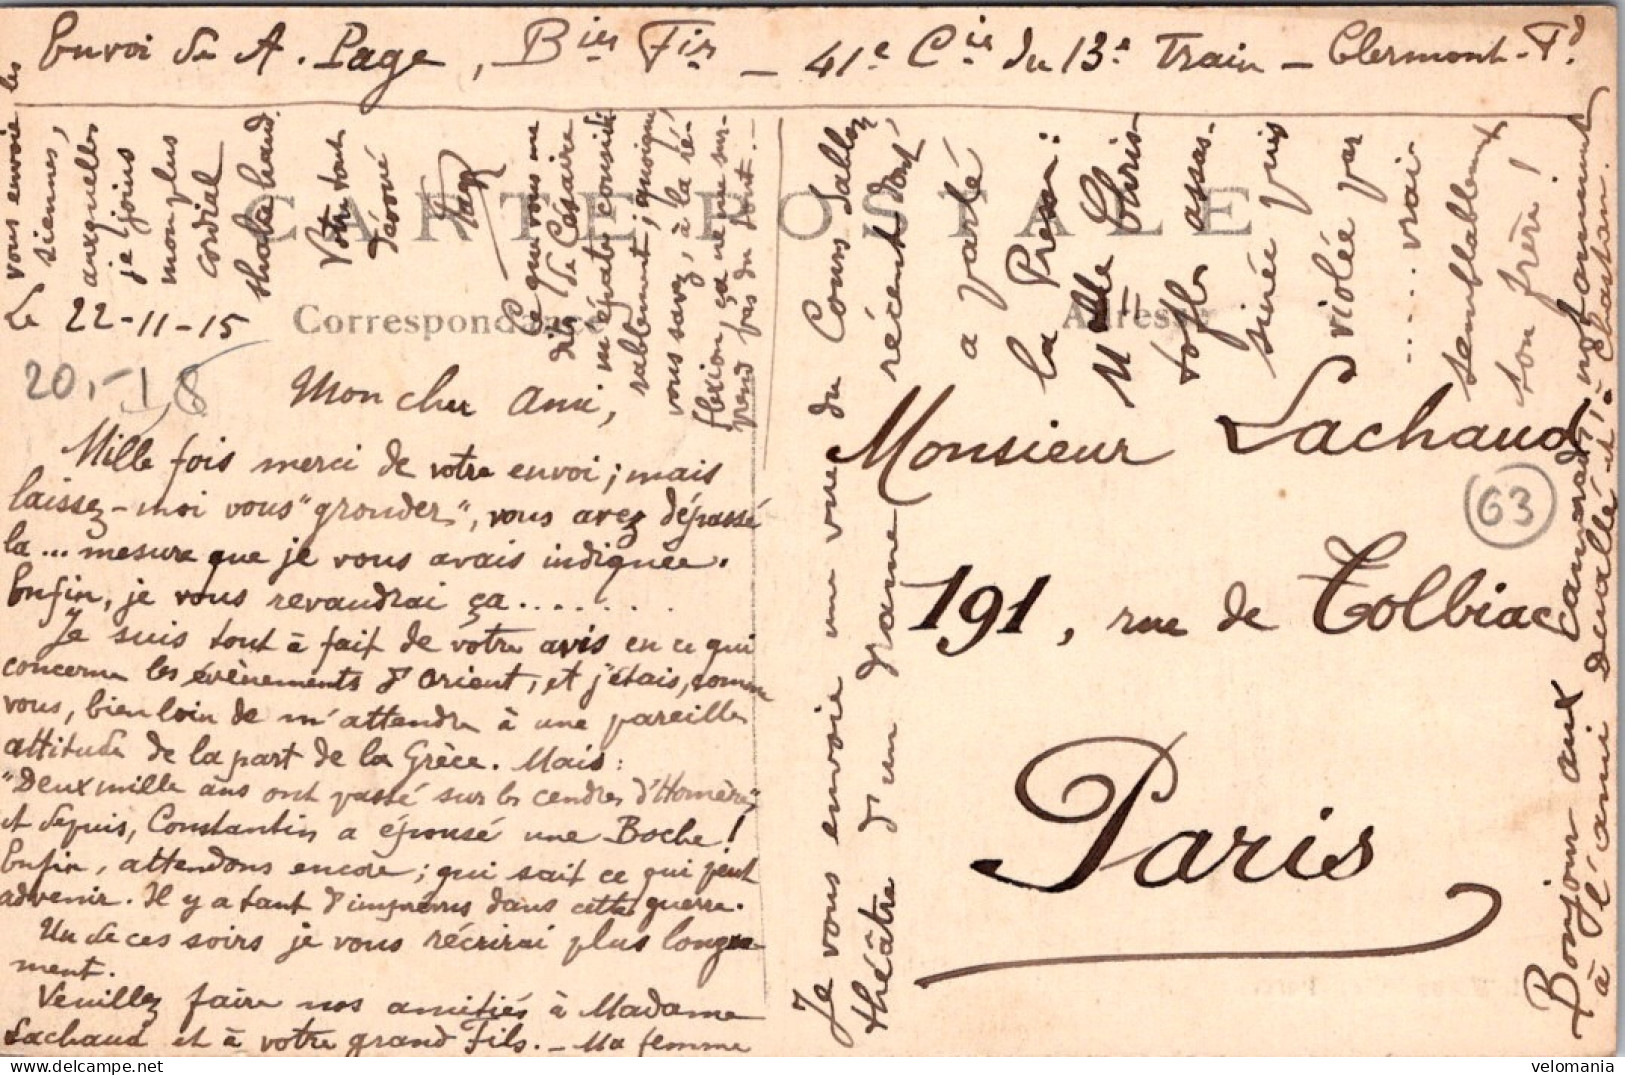 Envoi de A. Page, Bier Fir - 41e Cie du 13e Train - Clermont-Fd.
CARTE POSTALE
Correspondance
Adresse
Le 22-11-15
20,-
18
Mon cher Ami,
Mille fois merci de votre envoi ; mais
laissez-moi vous "gronder", vous avez dépassé
la ... mesure que je vous avais indiquée.
Enfin, je vous revaudrai ça........
Je suis tout à fait de votre avis en ce qui
concerne les évènements d'Orient, et j'étais, comme
vous, bien loin de m'attendre à une pareille
attitude de la part de la Grèce. Mais :
"Deux mille ans ont passé sur les cendres d'Homère",
et depuis, Constantin a épousé une Boche !
Enfin, attendons encore ; qui sait ce qui peut
advenir. Il y a tant d'imprévus dans cette guerre.
Un de ces soirs je vous récrirai plus longue-
ment.
Veuillez faire nos amitiés à Madame
Lachaud et à votre grand Fils. - Ma femme
vous envoie les
siennes,
auxquelles
je joins
mon plus
cordial
shake hand.
Votre tout
dévoué
Page
Ce que vous me
dites de Césaire
m'épate considé-
rablement ; quoique,
vous savez, à la ré-
flexion, ça ne me sur-
prend pas du tout.-
Je vous envoie une vue du Cours Sablon
théâtre d'un drame récent dont
a parlé
la Presse :
Mlle Chris-
tofle assas-
sinée puis
violée par
.... vrai
semblablement
son frère !
Monsieur Lachaud
191, rue de Tolbiac
Paris
63
Bonjour aux camarades notamment
à l'ami Devallé et à Chastan.
velomania